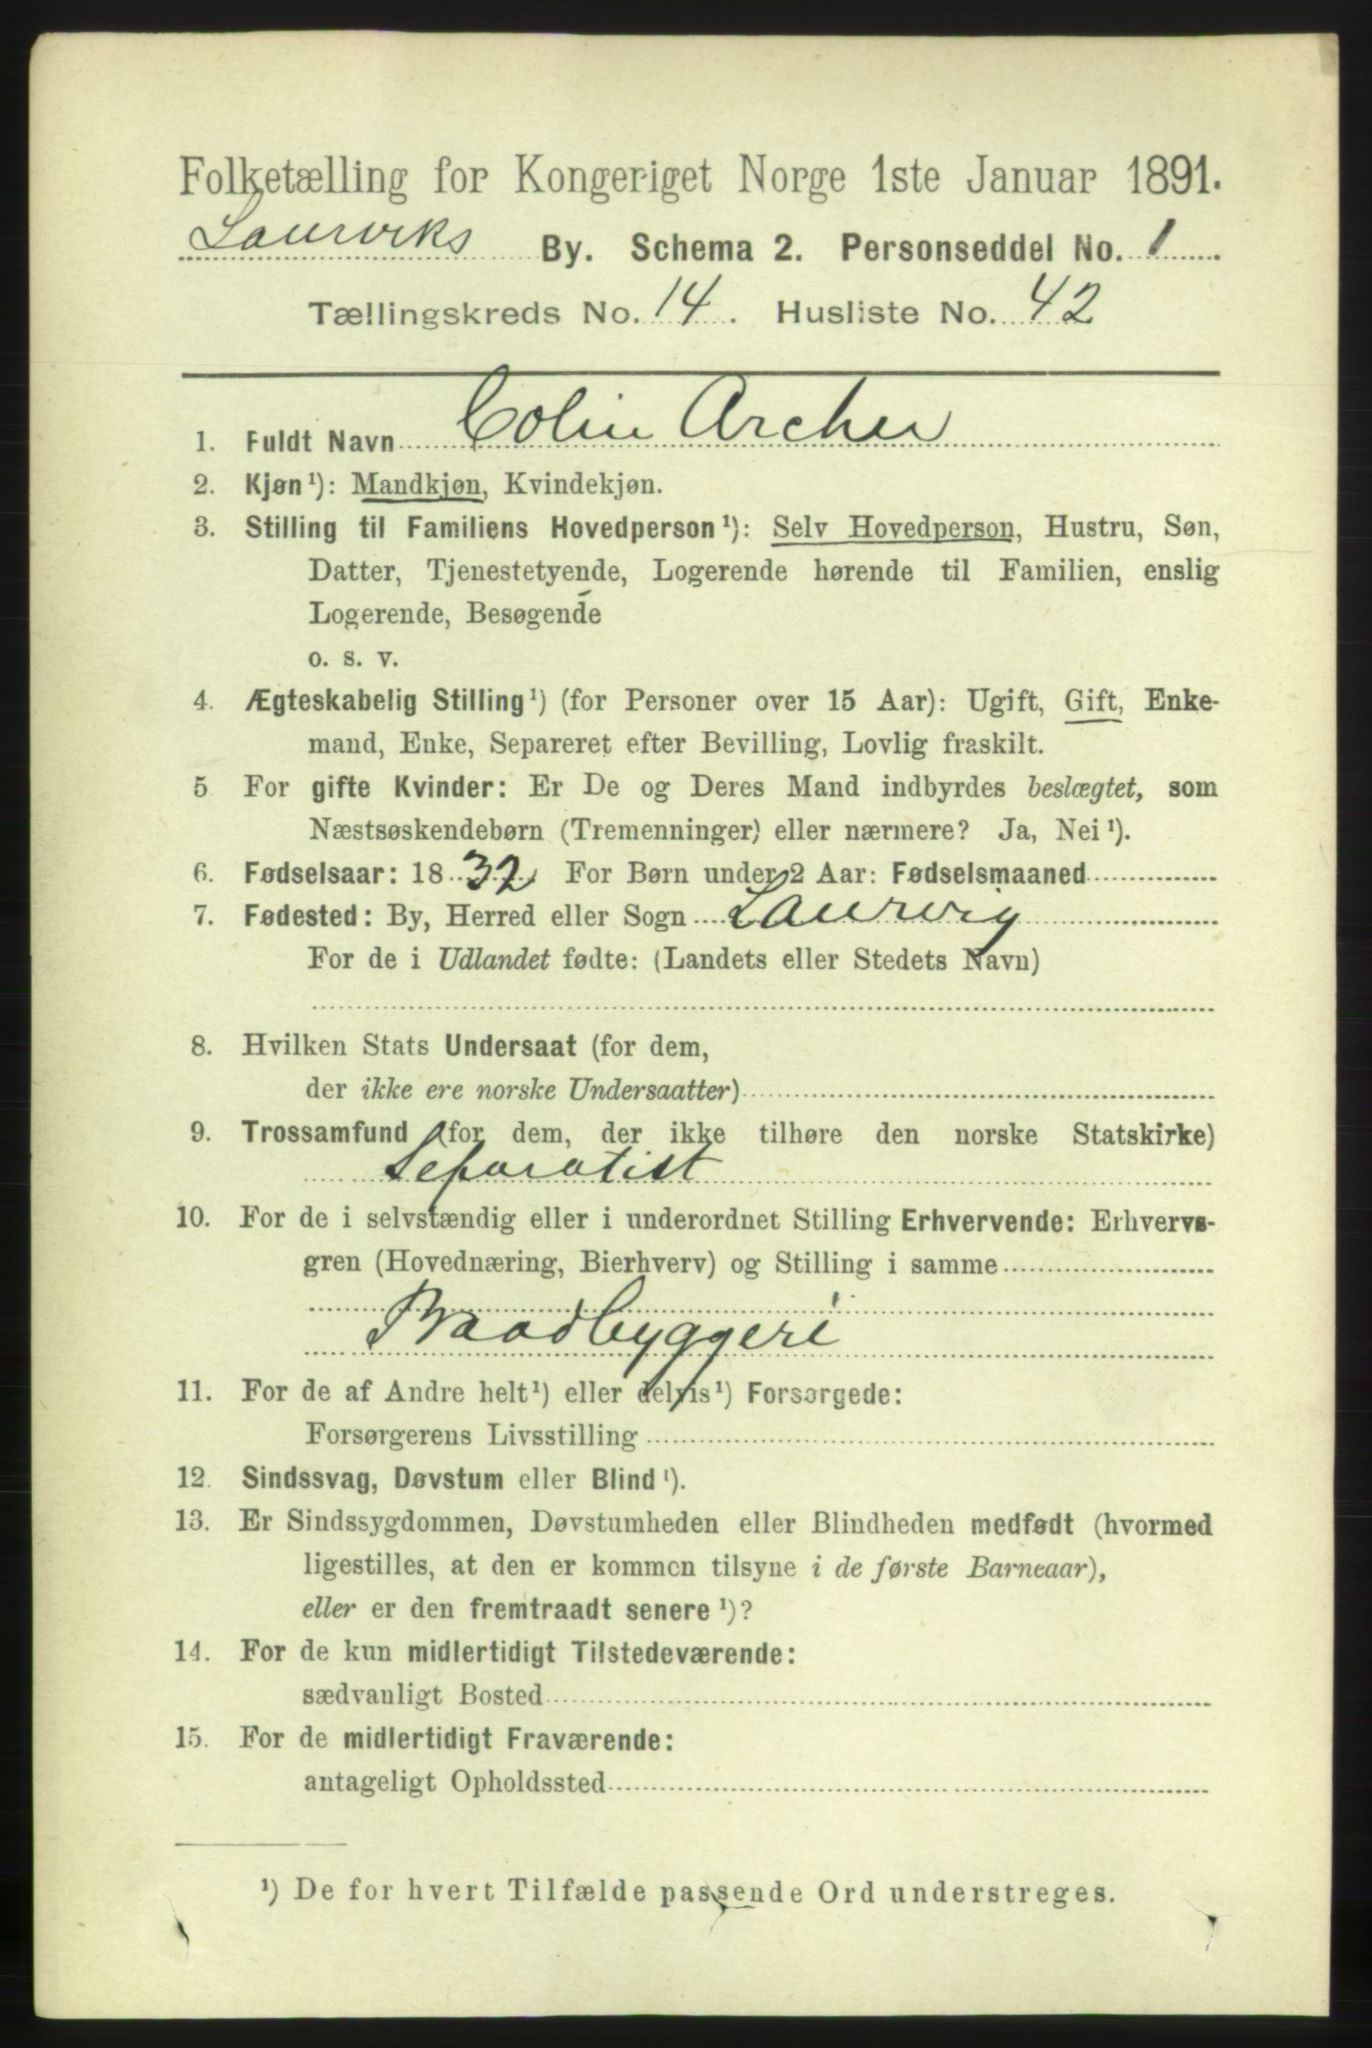 Folketælling for Kongeriget Norge 1ste Januar 1891.
Laurviks By. Schema 2. Personseddel No. 1
Tællingskreds No. 14. Husliste No. 42
1. Fuldt Navn Colin Archer
2. Kjøn¹): Mandkjøn, Kvindekjøn.
3. Stilling til Familiens Hovedperson¹): Selv Hovedperson, Hustru, Søn,
Datter, Tjenestetyende, Logerende hørende til Familien, enslig
Logerende, Besøgende
o. s. v.
4. Ægteskabelig Stilling¹) (for Personer over 15 Aar): Ugift, Gift, Enke-
mand, Enke, Separeret efter Bevilling, Lovlig fraskilt.
5 For gifte Kvinder: Er De og Deres Mand indbyrdes beslægtet, som
Næstsøskendebørn (Tremenninger) eller nærmere? Ja, Nei¹).
6. Fødselsaar: 1832 For Børn under 2 Aar: Fødselsmaaned
7. Fødested: By, Herred eller Sogn Laurvig
For de i Udlandet fødte: (Landets eller Stedets Navn)
8. Hvilken Stats Undersaat (for dem,
der ikke ere norske Undersaatter)
9. Trossamfund (for dem, der ikke tilhøre den norske Statskirke)
Separatist
10. For de i selvstændig eller i underordnet Stilling Erhvervende: Erhvervs-
gren (Hovednæring, Bierhverv) og Stilling i samme
Baadbyggeri
11. For de af Andre helt¹) eller delvis¹) Forsørgede:
Forsørgerens Livsstilling
12. Sindssvag, Døvstum eller Blind¹).
13. Er Sindssygdommen, Døvstumheden eller Blindheden medfødt (hvormed
ligestilles, at den er kommen tilsyne i de første Barneaar),
eller er den fremtraadt senere¹)?
14. For de kun midlertidigt Tilstedeværende:
sædvanligt Bosted
15. For de midlertidigt Fraværende:
antageligt Opholdssted
¹) De for hvert Tilfælde passende Ord understreges.